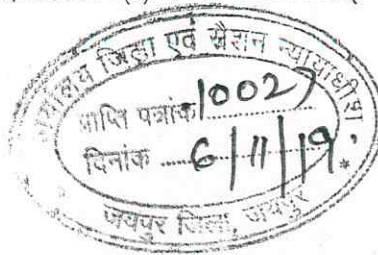 कार्यालय जिला एवं सैशन न्यायाधीश
प्राप्ति पत्रांक 10027
दिनांक 6/11/19
जयपुर जिला, जयपुर